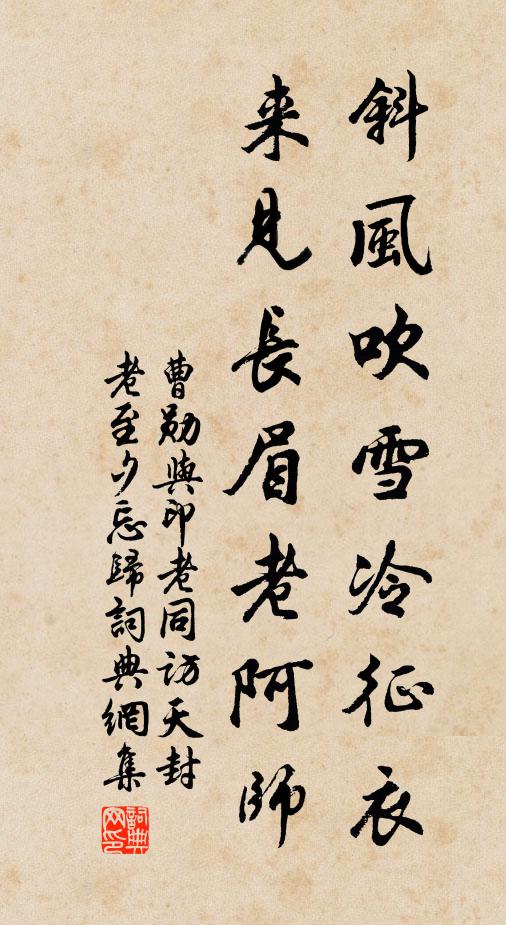 斜風吹雪冷征衣
來見長眉老阿師
曹勛與印老同訪天封
老至夕忘歸詞典網集
詞典
网印